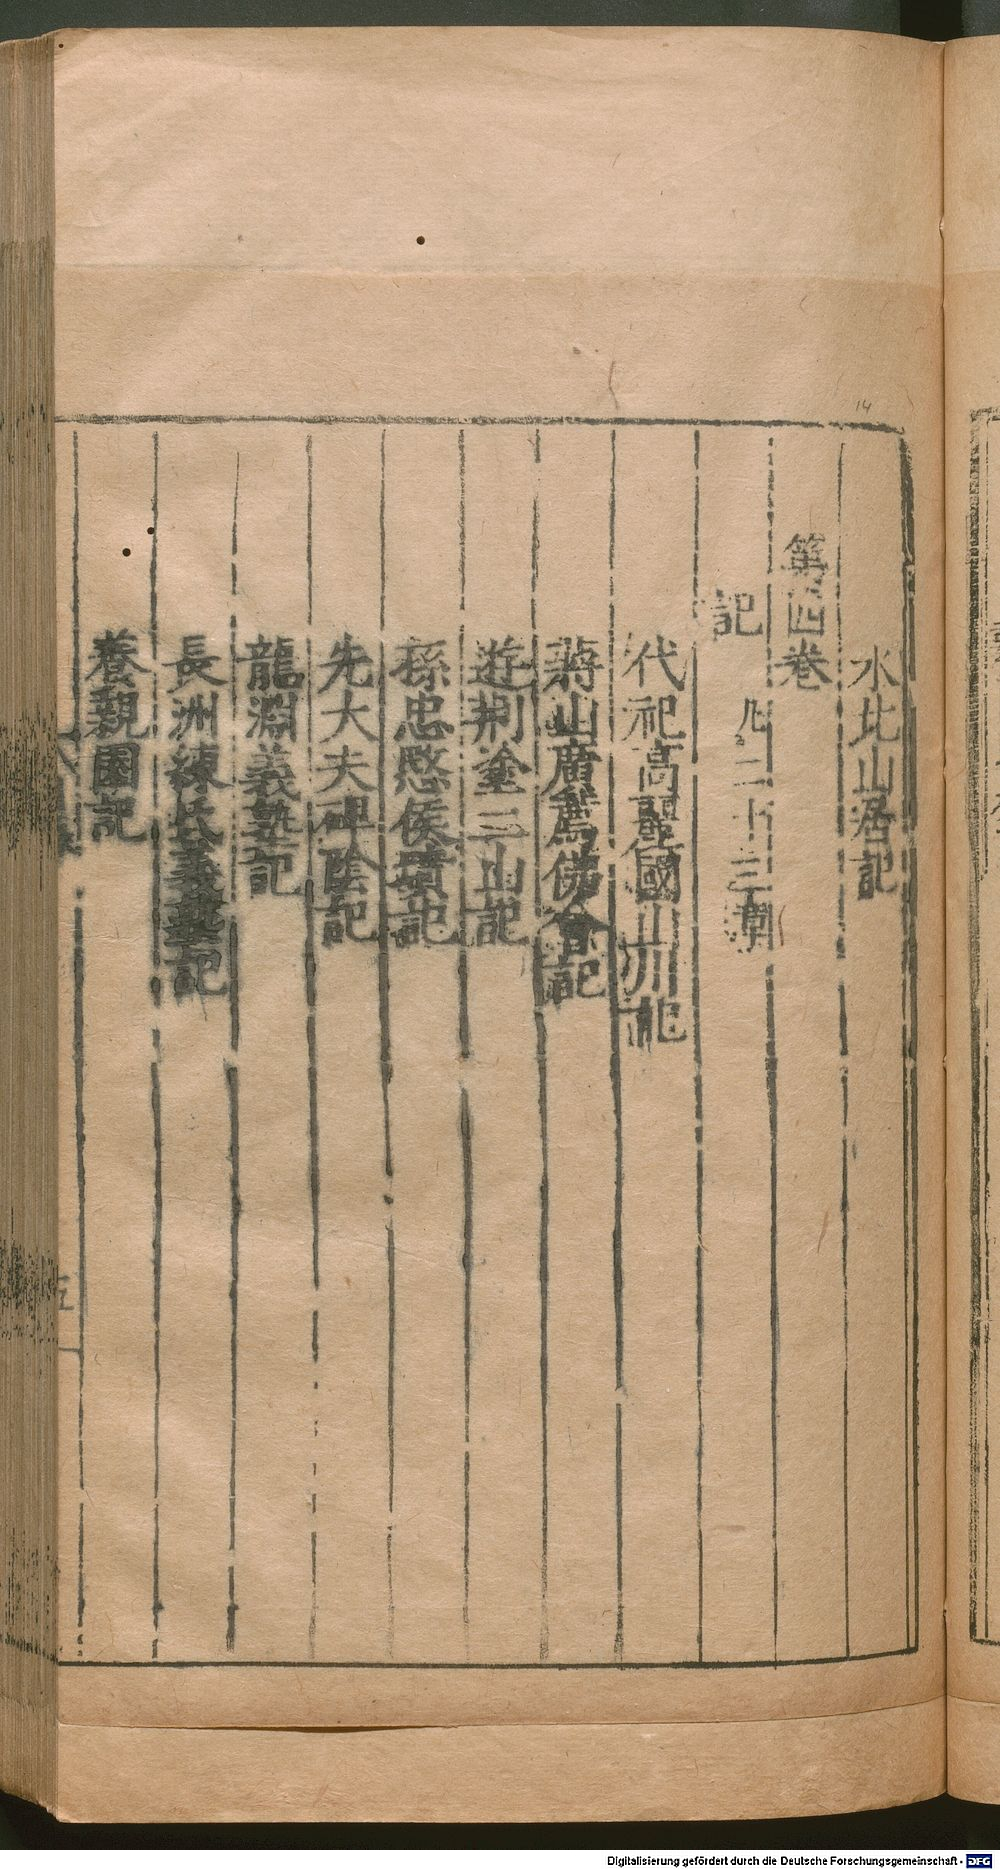 水北山居記
第四卷
記
凡二十三章
代祀高麗國山川記
蔣山廣薦佛會記
遊荆塗二山記
孫忠愍侯墳記
先大夫碑陰記
龍淵義塾記
長洲練氏義塾記
養親園記
五
14
Digitalisierung gefördert durch die Deutsche Forschungsgemeinschaft - DFG